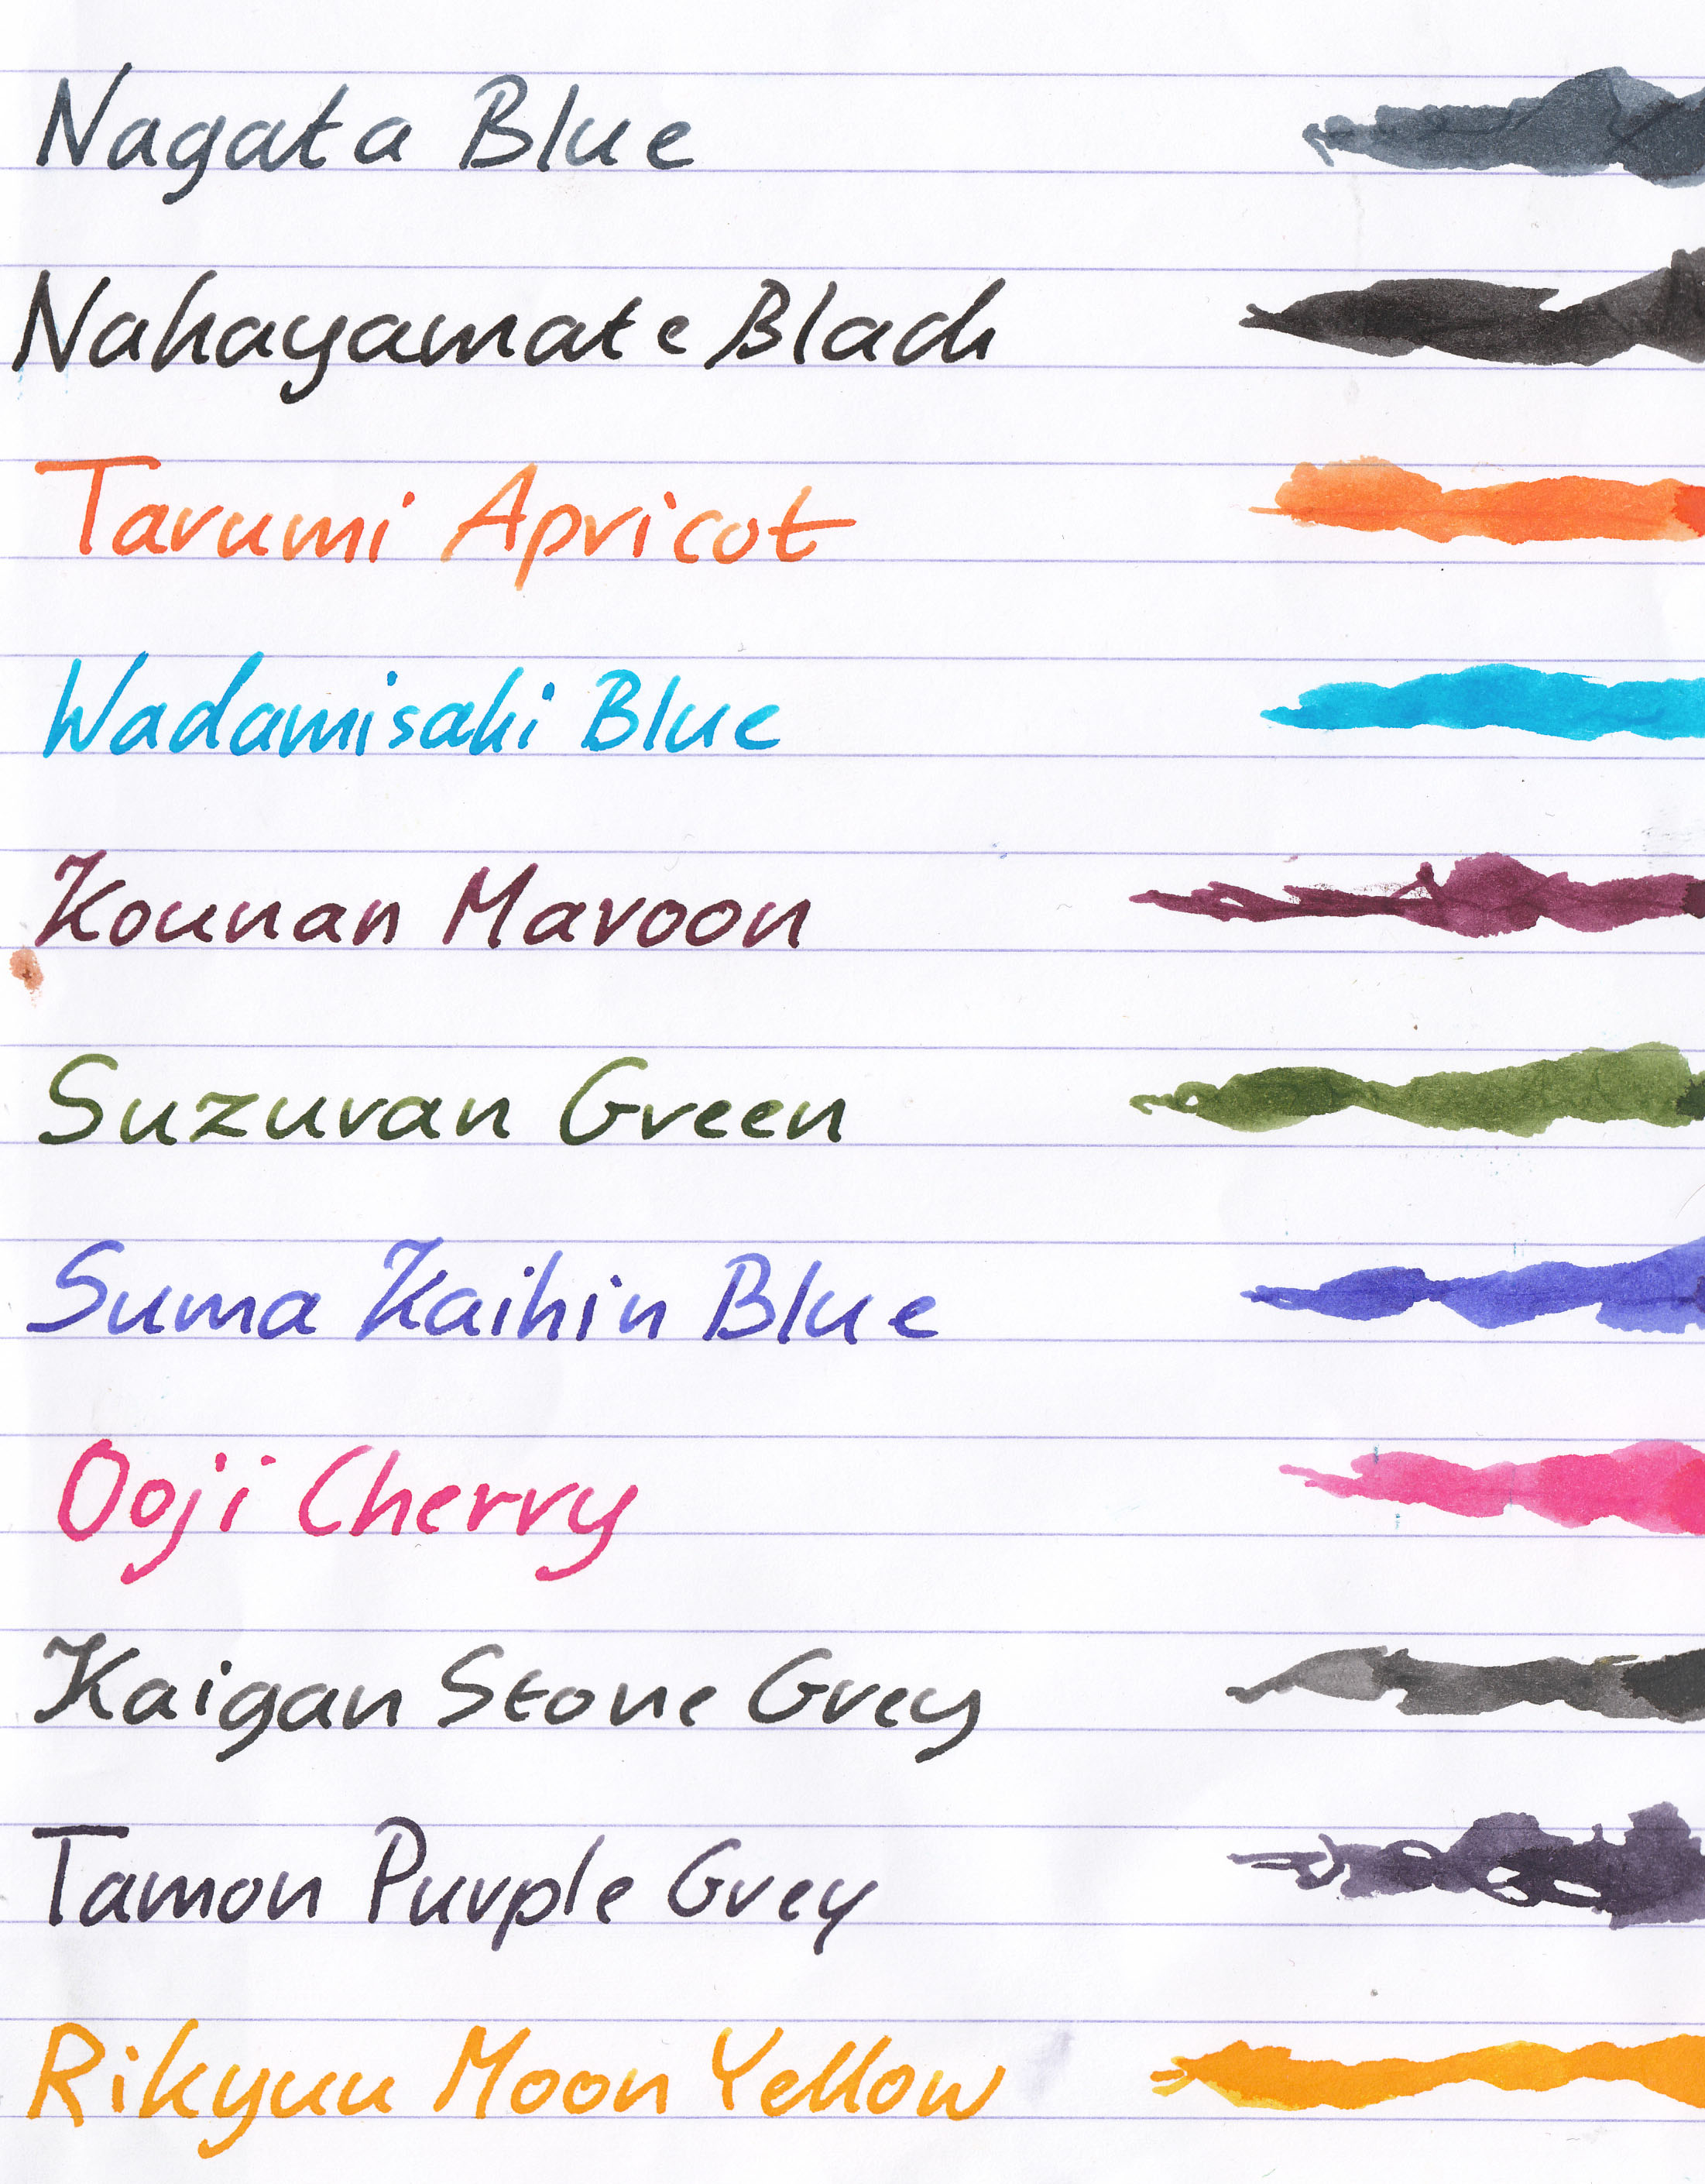 Nagata Blue
Nakayamate Black
Tarumi Apricot
Wadamisaki Blue
Kounan Maroon
Suzuran Green
Suma Kaihin Blue
Ooji Cherry
Kaigan Stone Grey
Tamon Purple Grey
Rikyuu Moon Yellow